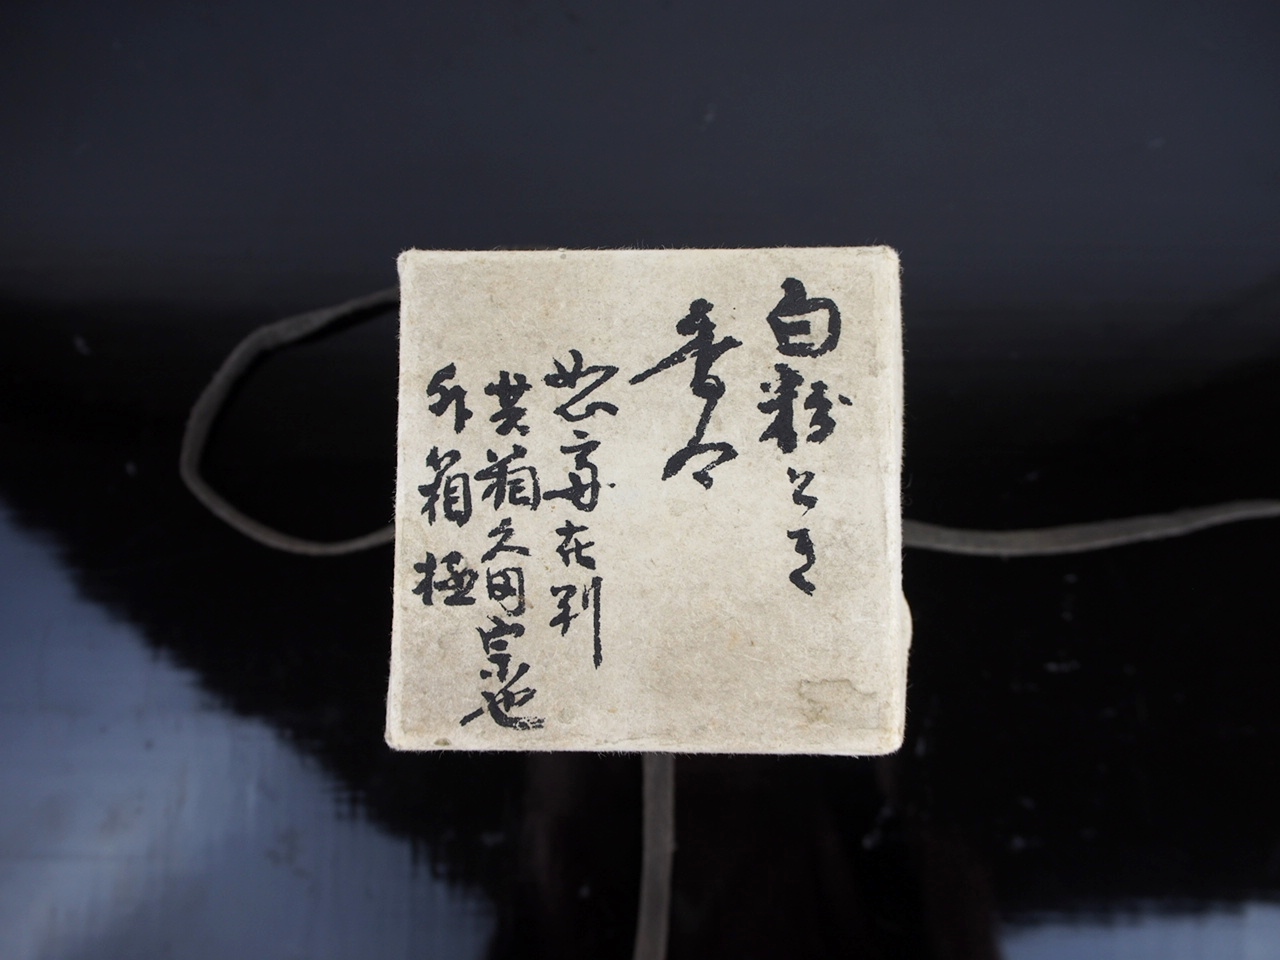 白粉とき
香合
如心斎在判
共箱久田宗也
外箱極